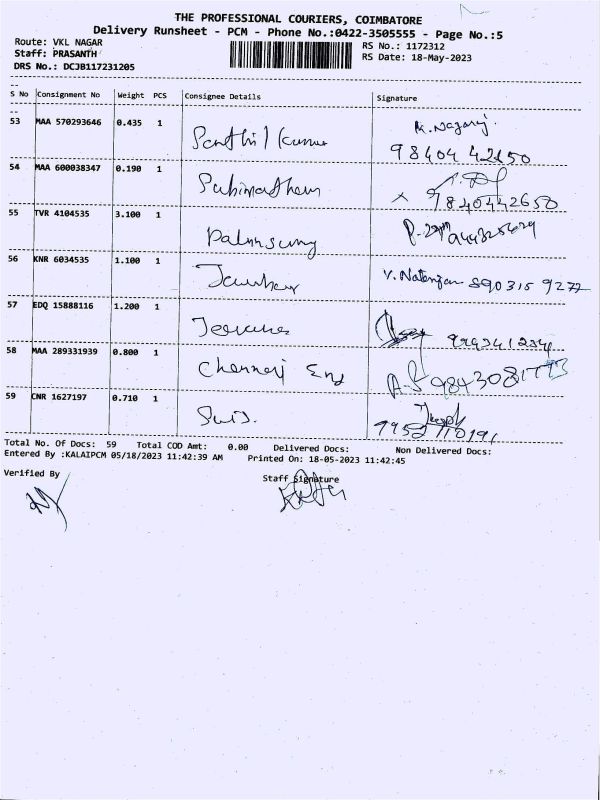 THE PROFESSIONAL COURIERS, COIMBATORE
Delivery Runsheet - PCM - Phone No.:0422-3505555 - Page No.:5
Route: VKL NAGAR
RS No.: 1172312
Staff: PRASANTH
RS Date: 18-May-2023
DRS No.: DCJB117231205
S No Consignment No Weight PCS Consignee Details Signature
53 MAA 570293646 0.435 1 Senthil Kumar K. Nagaraj
98404 42650
54 MAA 600038347 0.190 1
9840442650
55 TVR 4104535 3.100 1
56 KNR 6034535 1.100 1 V. Natenjan 890315 9277
57 EDQ 15888116 1.200 1
58 MAA 289331939 0.800 1 Chennai Eng
59 CNR 1627197 0.710 1
Total No. Of Docs: 59 Total COD Amt: 0.00 Delivered Docs: Non Delivered Docs:
Entered By :KALAIPCM 05/18/2023 11:42:39 AM Printed On: 18-05-2023 11:42:45
Verified By Staff Signature